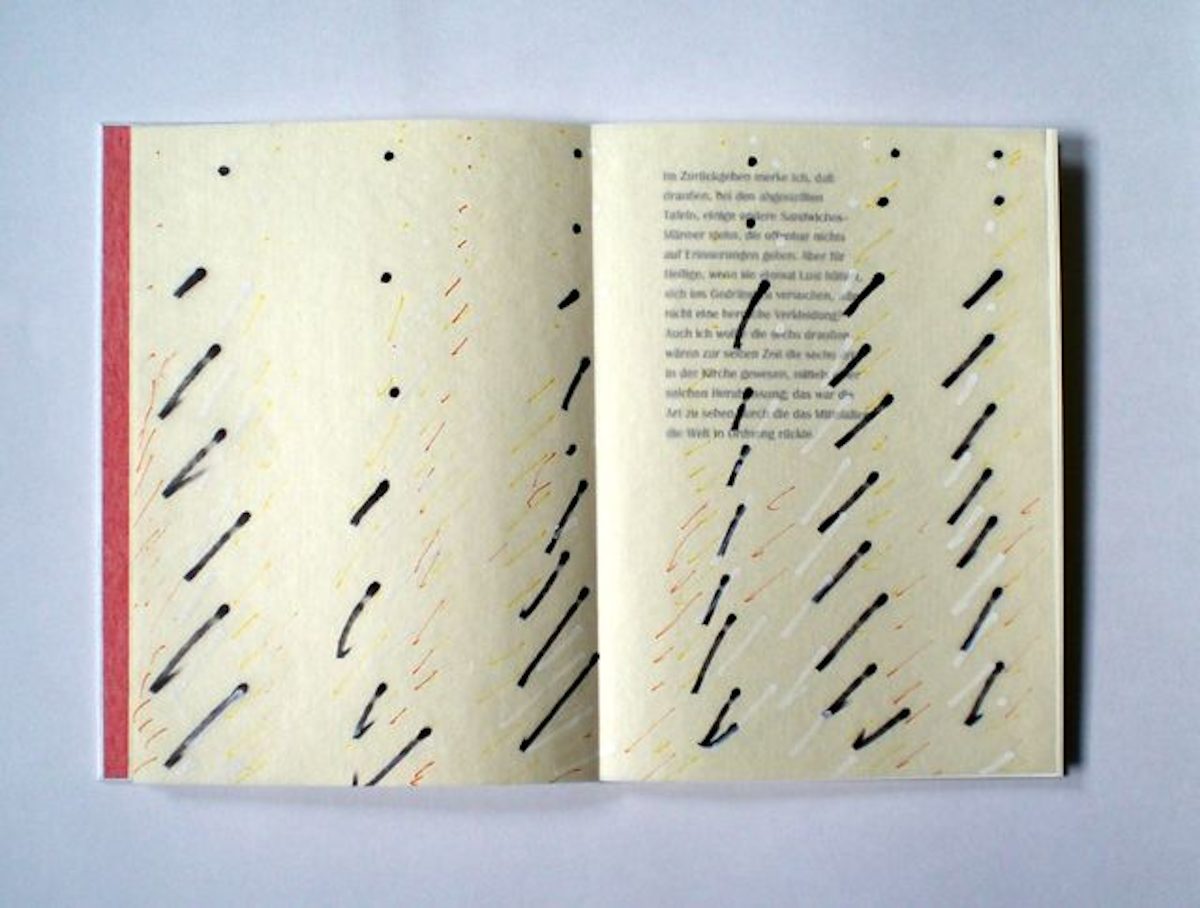 Im Zurückgeben merke ich, daß
draußen, bei den abgestellten
Tafeln, einige andere Sandwiches-
Männer stehn, die offenbar nichts
auf Erinnerungen geben. Aber für
Heilige, wenn sie einmal Lust hätten,
sich ins Gedränge zu versuchen,
nicht eine Verbindung?
Auch ich die sechs draußen
wären zur selben Zeit die sechs
in der Kirche gewesen, mittels
solchen das war die
Art zu sehen durch die das Mittelalter
die Welt in Ordnung rückte.